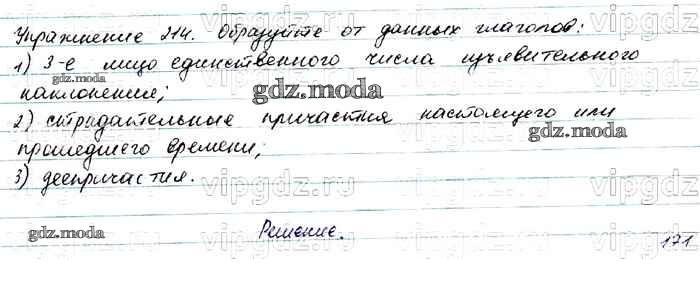 Упражнение 214. Образуйте от данных глаголов:
1) 3-е лицо единственного числа изъявительного
gdz.moda
наклонения;
gdz.moda
2) страдательные причастия настоящего или
gdz.moda
прошедшего времени;
3) деепричастия.
Решение.
gdz.moda
171
vipgdz.ru